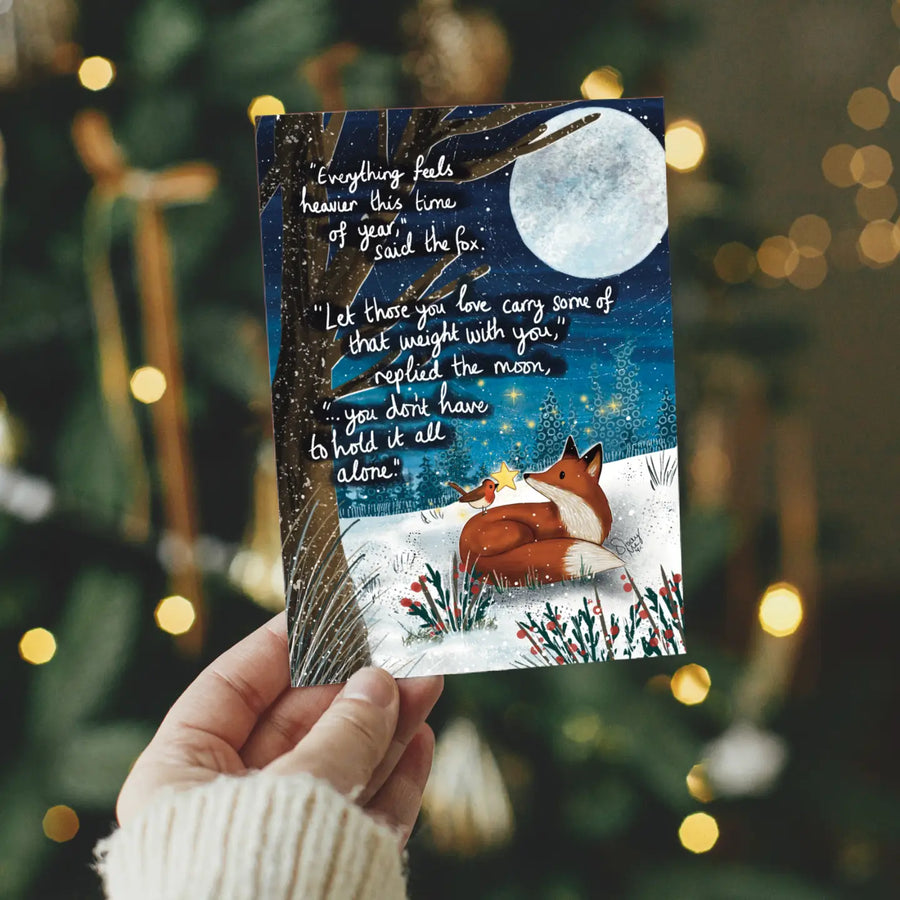 "Everything feels
heavier this time
of year,"
said the fox.
"Let those you love carry some of
that weight with you,"
replied the moon,
"... you don't have
to hold it all
alone."